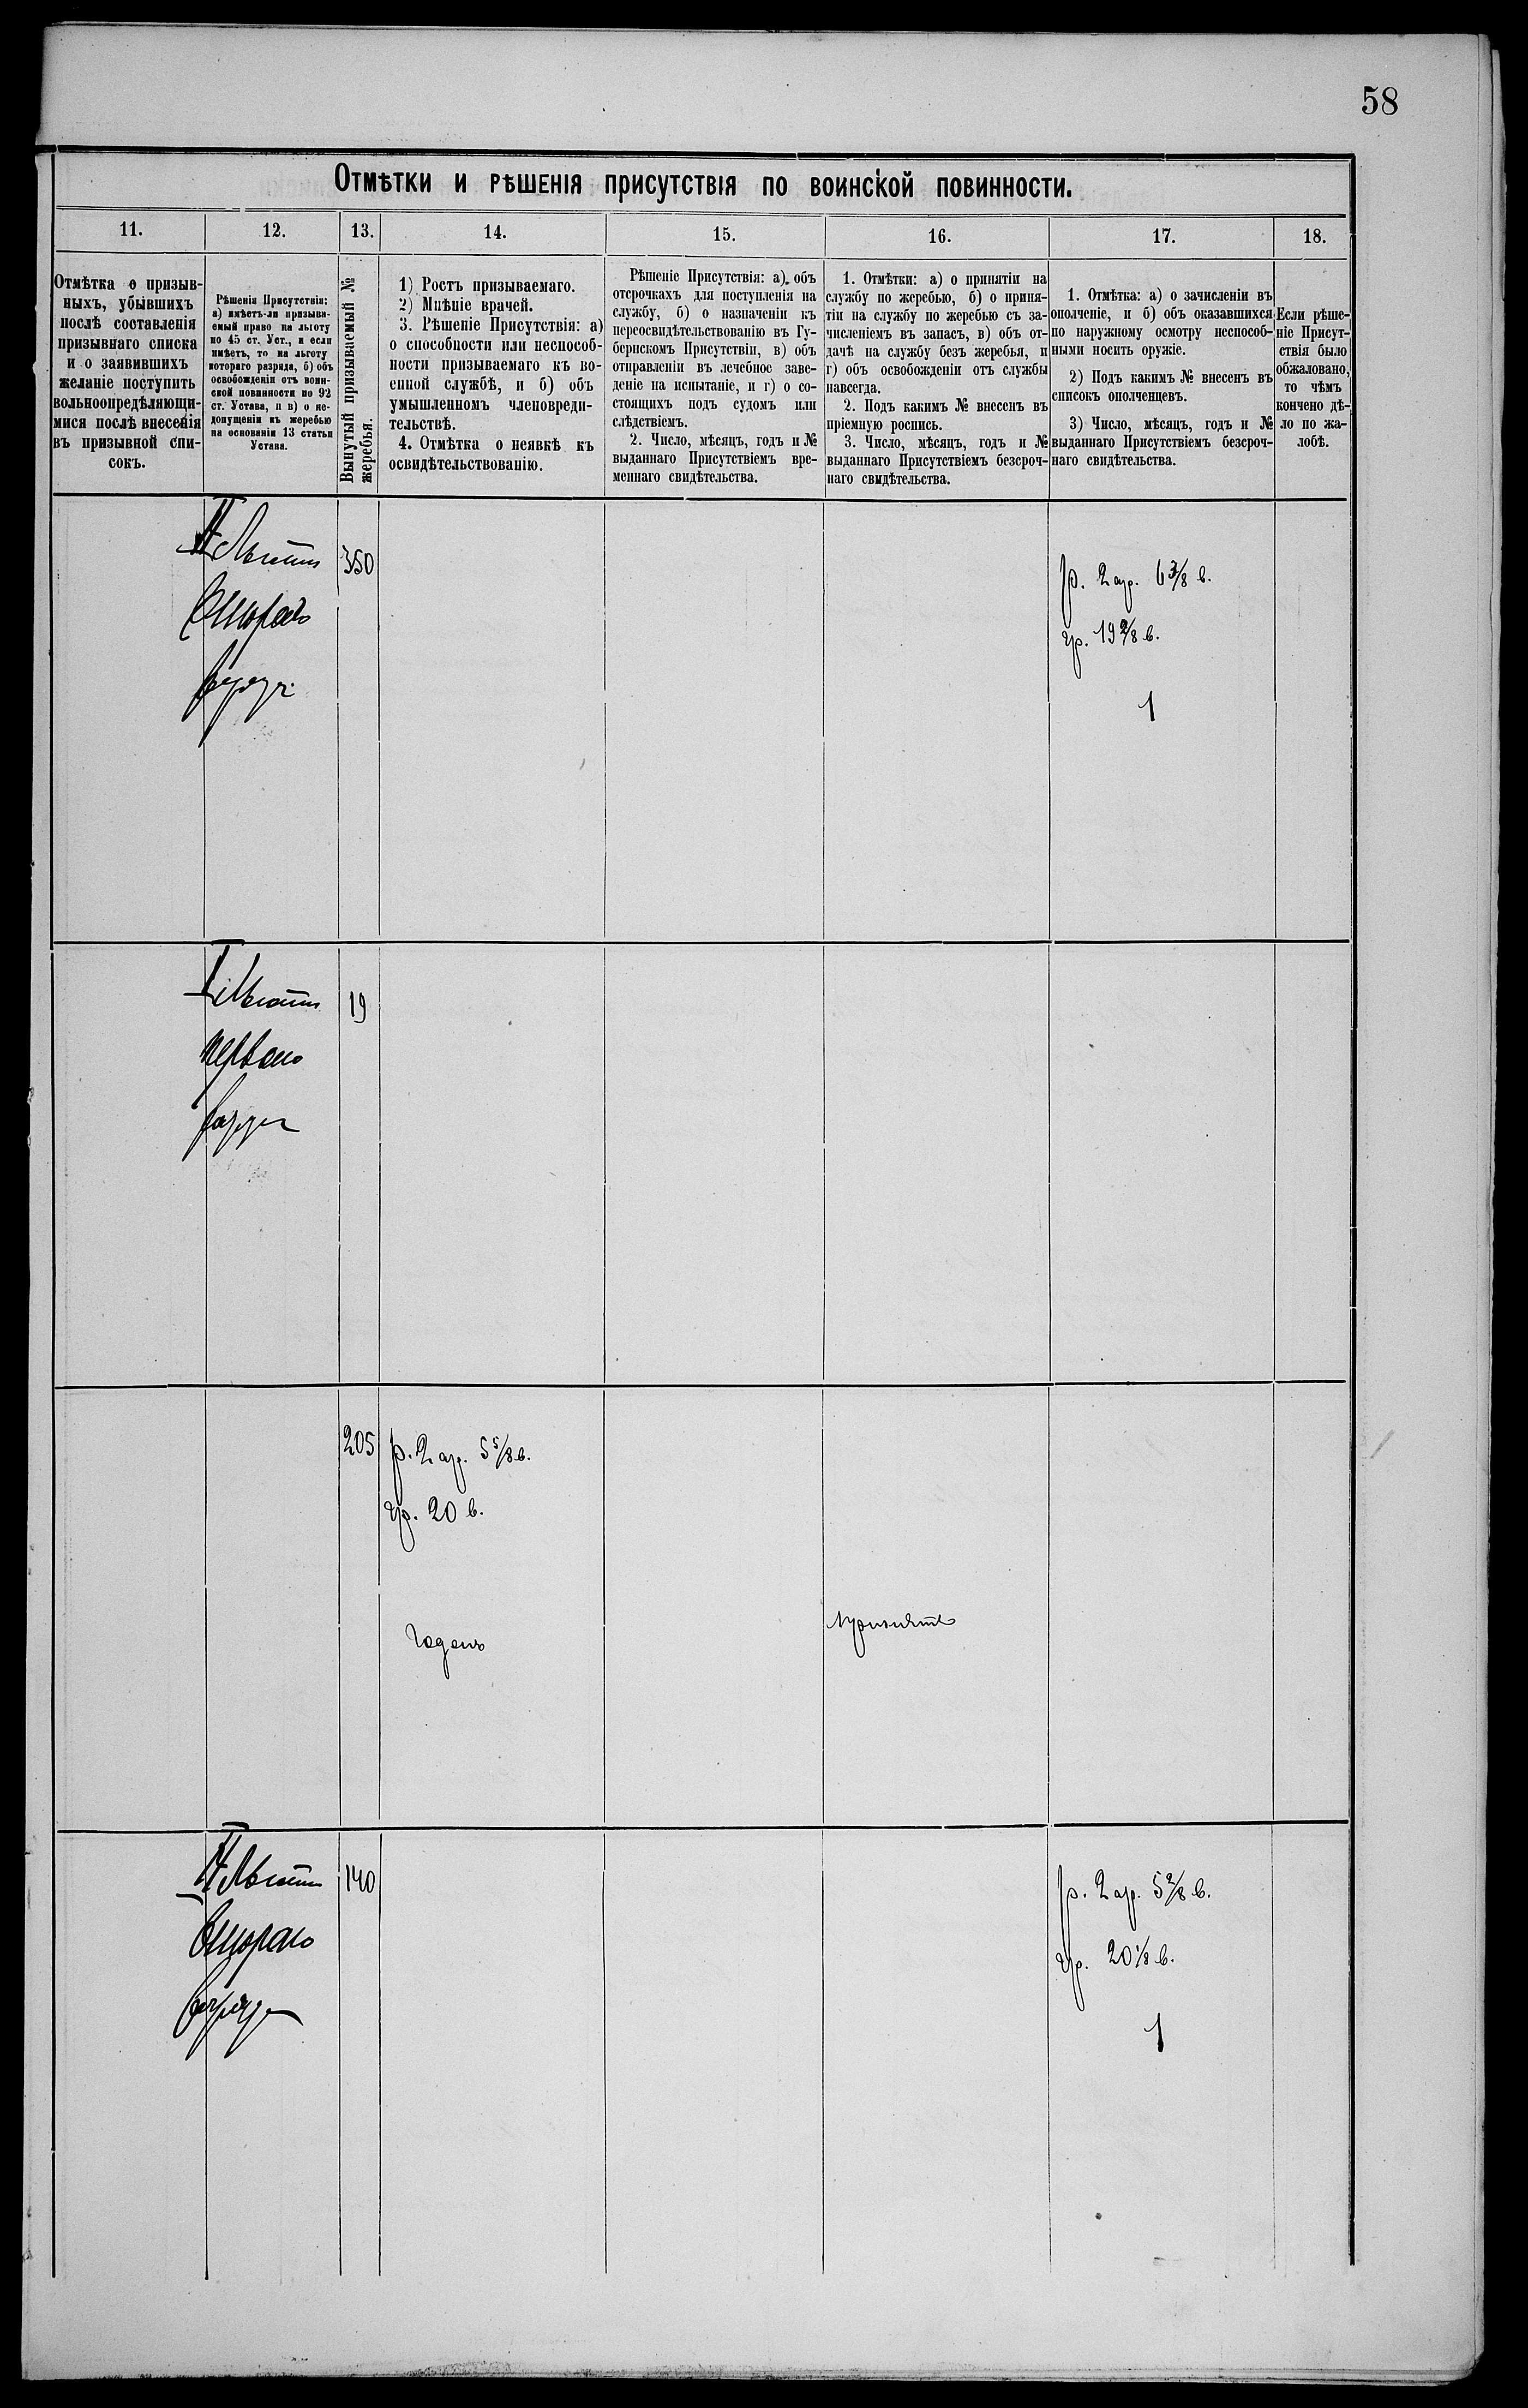 58
Отмѣтки и рѣшенія присутствія по воинской повинности.
11.
12.
13.
14.
15.
16.
17.
18.
Отмѣтка о призыв-
ныхъ, убывшихъ
послѣ составленія
призывнаго списка
и о заявившихъ
желаніе поступить
вольноопредѣляющи-
мися послѣ внесенія
въ призывной спи-
сокъ.
Рѣшенія Присутствія:
а) имѣетъ-ли призыва-
емый право на льготу
по 45 ст. Уст., и если
имѣетъ, то на льготу
котораго разряда, б) объ
освобожденіи отъ воин-
ской повинности по 92
ст. Устава, и в) о не-
допущеніи къ жеребью
на основаніи 13 статьи
Устава.
Вынутый призываемый №
жеребья.
1) Ростъ призываемаго.
2) Мнѣніе врачей.
3. Рѣшеніе Присутствія: а)
о способности или неспособ-
ности призываемаго къ во-
енной службѣ, и б) объ
умышленномъ членовреди-
тельствѣ.
4. Отмѣтка о неявкѣ къ
освидѣтельствованію.
Рѣшеніе Присутствія: а) объ
отсрочкахъ для поступленія на
службу, б) о назначеніи къ
переосвидѣтельствованію въ Гу-
бернскомъ Присутствіи, в) объ
отправленіи въ лечебное заве-
деніе на испытаніе, и г) о со-
стоящихъ подъ судомъ или
слѣдствіемъ.
2. Число, мѣсяцъ, годъ и №
выданнаго Присутствіемъ вре-
меннаго свидѣтельства.
1. Отмѣтки: а) о принятіи на
службу по жеребью, б) о приня-
тіи на службу по жеребью съ за-
численіемъ въ запасъ, в) объ от-
дачѣ на службу безъ жеребья, и
г) объ освобожденіи отъ службы
навсегда.
2. Подъ какимъ № внесенъ въ
пріемную роспись.
3. Число, мѣсяцъ, годъ и №
выданнаго Присутствіемъ безсроч-
наго свидѣтельства.
1. Отмѣтка: а) о зачисленіи въ
ополченіе, и б) объ оказавшихся
по наружному осмотру неспособ-
ными носить оружіе.
2) Подъ какимъ № внесенъ въ
списокъ ополченцевъ.
3) Число, мѣсяцъ, годъ и №
выданнаго Присутствіемъ безсроч-
наго свидѣтельства.
Если рѣше-
ніе Присут-
ствія было
обжаловано,
то чѣмъ
кончено дѣ-
ло по жа-
лобѣ.
II Льготы
Втораго
разряда
350
р. 2 ар. 6 3/8 в.
гр. 19 2/8 в.
1
I Льготы
перваго
разряда
19
205
р. 2 ар. 5 5/8 в.
гр. 20 в.
Годенъ
принятъ
II Льготы
Втораго
разряда
140
р. 2 ар. 5 2/8 в.
гр. 20 1/8 в.
1